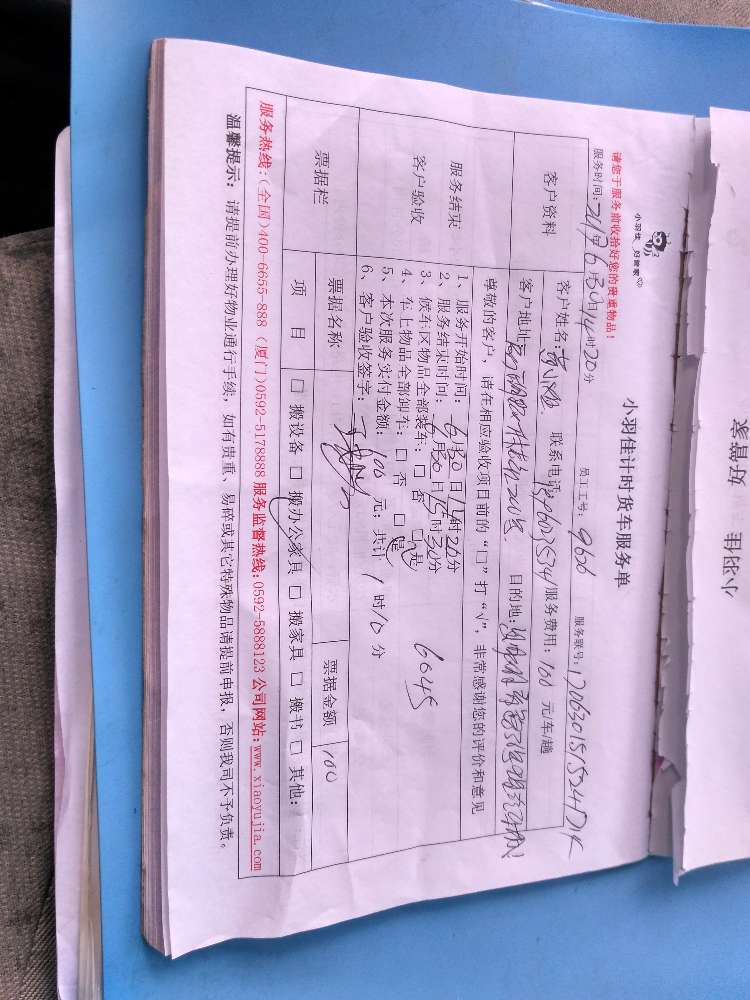 好管家
小羽佳
小羽佳 好管家
小羽佳计时货车服务单
请您于服务前收拾好您的贵重物品！
服务时间：2017年6月30日14时20分 员工工号：9626 服务联号：1706301515241D1K
客户资料
客户姓名： 联系电话： 服务费用：100 元车/趟
客户地址： 目的地：
尊敬的客户，请在相应验收项目前的“□”打“√”，非常感谢您的评价和意见
服务结束
客户验收
1、服务开始时间：6月30日14时20分
2、服务结束时间：6月30日15时30分
3、候车区物品全部装车：□ 否 □ 是
4、车上物品全部卸车：□ 否 □ 是
6645
5、本次服务实付金额：100 元；共计 1 时10 分
6、客户验收签字：
票据栏
票据名称 票据金额 100
项 目 □ 搬设备 □ 搬办公家具 □ 搬家具 □ 搬书 □ 其他：
服务热线：(全国)400-6655-888 (厦门)0592-5178888 服务监督热线：0592-5888123 公司网站：www.xiaoyujia.com
温馨提示：请提前办理好物业通行手续，如有贵重、易碎或其它特殊物品请提前申报，否则我司不予负责。